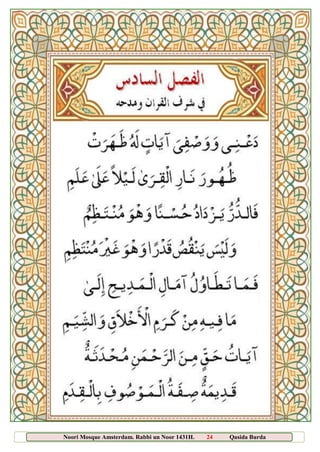 الفصل السادس
في شرف القران ومدحه
دَعْنِي وَوَصْفِيَ آيَاتٍ لَهُ ظَهَرَتْ
ظُهُورَ نَارِ الْقِرَىٰ لَيْلًا عَلَىٰ عَلَمِ
فَالدُّرُّ يَزْدَادُ حُسْنًا وَهْوَ مُنْتَظِمٌ
وَلَيْسَ يَنْقُصُ قَدْرًا وَهْوَ غَيْرَ مُنْتَظِمِ
فَمَا تَطَاوُلُ آمَالِ الْمَدِيحِ إِلَىٰ
مَا فِيهِ مِنْ كَرَمِ الْأَخْلَاقِ وَالشِّيَمِ
آيَاتُ حَقٍّ مِنَ الرَّحْمَنِ مُحْدَثَةٌ
قَدِيمَةٌ صِفَةُ الْمَوْصُوفِ بِالْقِدَمِ
Noori Mosque Amsterdam. Rabbi un Noor 1431H. 24 Qasida Burda